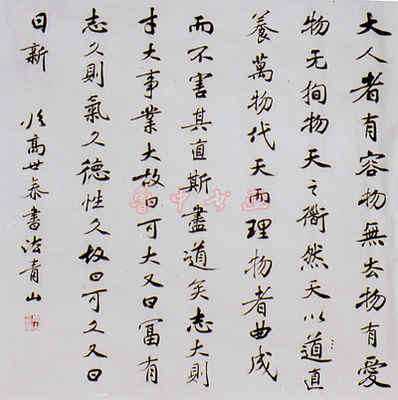 大人者有容物無去物有愛
物无狥物天之衟然天以道直
養萬物代天而理物者曲成
而不害其直斯盡道矣志大則
才大事業大故曰可大又曰冨有
志久則氣久德性久故曰可久又曰
日新 高世泰書 青山
鲁中书画